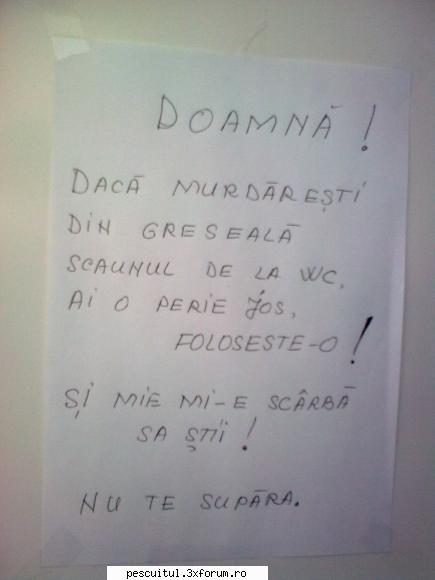 DOAMNĂ!
DACĂ MURDĂREȘTI
DIN GRESEALĂ
SCAUNUL DE LA WC,
AI O PERIE JOS,
FOLOSESTE-O!
ȘI MIE MI-E SCÂRBĂ
SA ȘTII!
NU TE SUPĂRA.
pescuitul.3xforum.ro